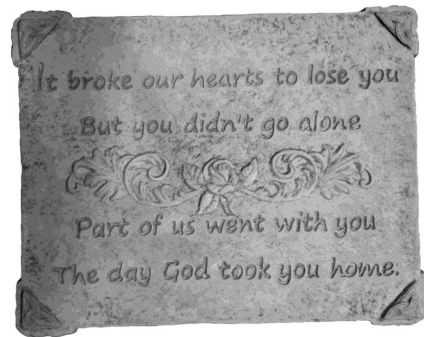 It broke our hearts to lose you
But you didn't go alone
Part of us went with you
The day God took you home.